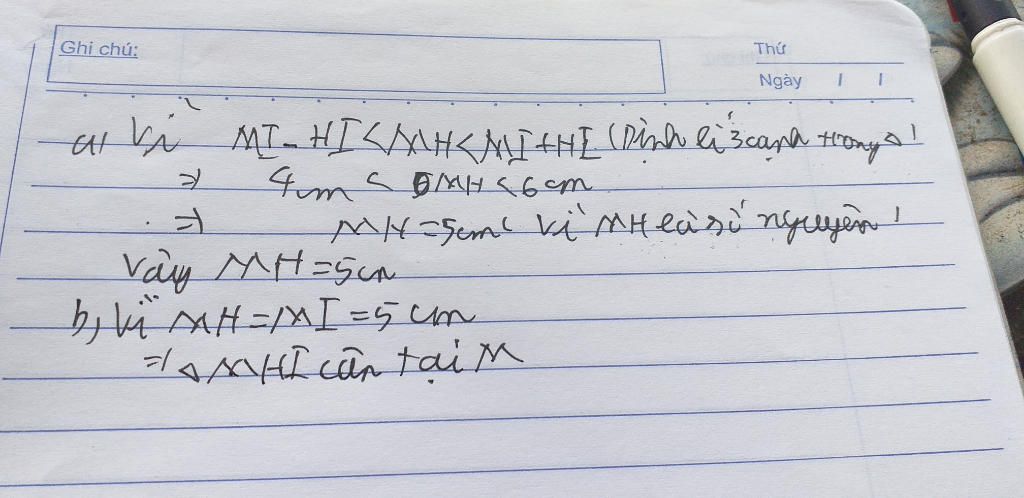 Ghi chú:
Thứ
Ngày / /
a) Vì MI - HI < MH < MI + HI (Định lí 3 cạnh trong Δ)
=> 4cm < MH < 6cm
=> MH = 5cm ( Vì MH là số nguyên )
Vậy MH = 5cm
b) Vì MH = MI = 5 cm
=> Δ MHI cân tại M